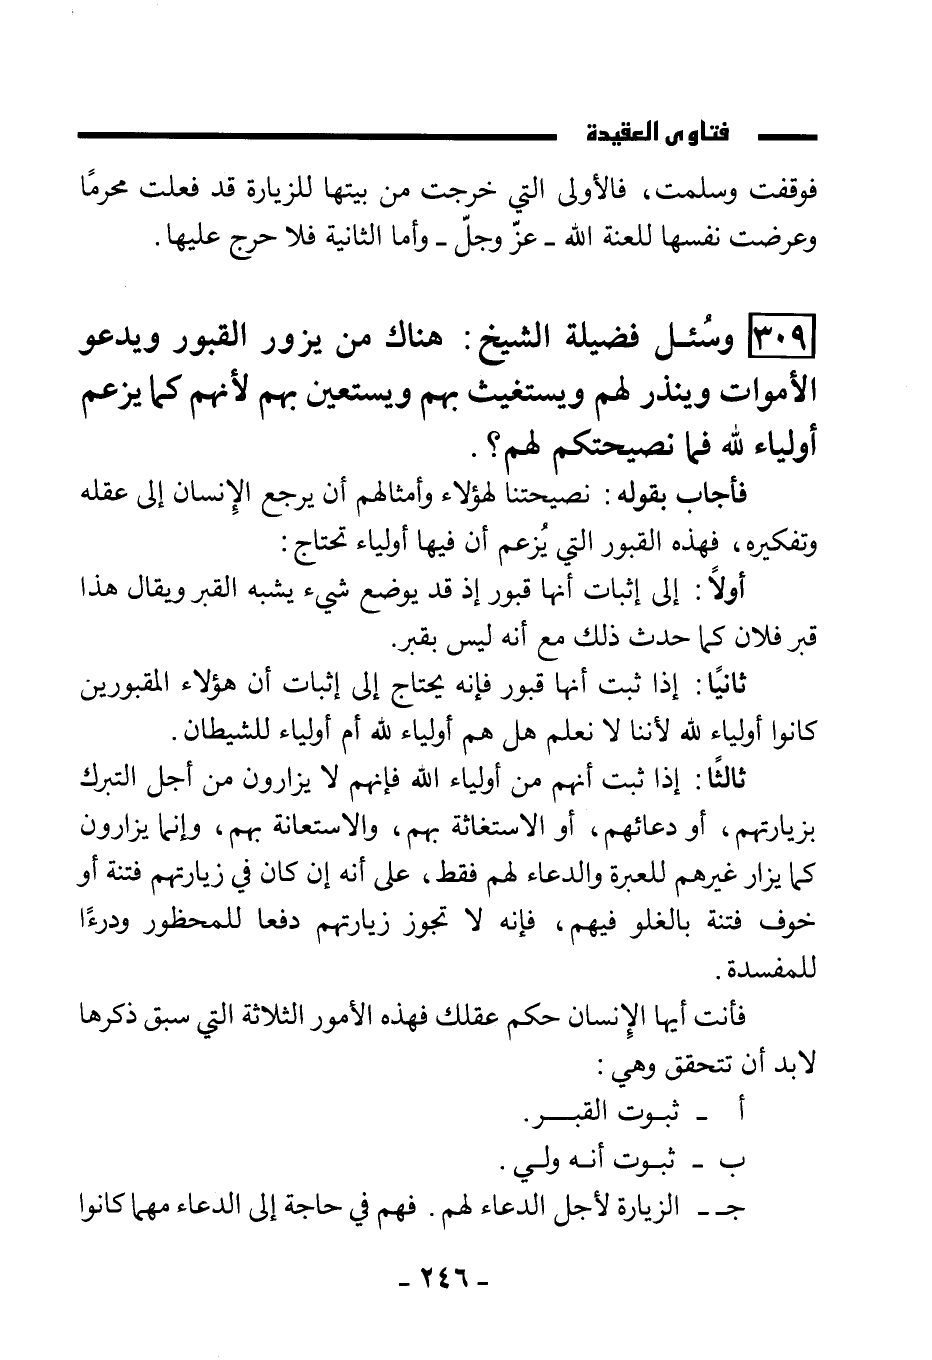 فتاوى العقيدة
فوقفت وسلمت، فالأولى التي خرجت من بيتها للزيارة قد فعلت محرمًا
وعرضت نفسها للعنة الله ـ عزّ وجلّ ـ وأما الثانية فلا حرج عليها.
٣٠٩ وسُئـل فضيلة الشيخ: هناك من يزور القبور ويدعو
الأموات وينذر لهم ويستغيث بهم ويستعين بهم لأنهم كما يزعم
أولياء لله فما نصيحتكم لهم؟.
فأجاب بقوله: نصيحتنا لهؤلاء وأمثالهم أن يرجع الإنسان إلى عقله
وتفكيره، فهذه القبور التي يُزعم أن فيها أولياء تحتاج:
أولاً: إلى إثبات أنها قبور إذ قد يوضع شيء يشبه القبر ويقال هذا
قبر فلان كما حدث ذلك مع أنه ليس بقبر.
ثانيًا: إذا ثبت أنها قبور فإنه يحتاج إلى إثبات أن هؤلاء المقبورين
كانوا أولياء لله لأننا لا نعلم هل هم أولياء لله أم أولياء للشيطان.
ثالثًا: إذا ثبت أنهم من أولياء الله فإنهم لا يزارون من أجل التبرك
بزيارتهم، أو دعائهم، أو الاستغاثة بهم، والاستعانة بهم، وإنما يزارون
كما يزار غيرهم للعبرة والدعاء لهم فقط، على أنه إن كان في زيارتهم فتنة أو
خوف فتنة بالغلو فيهم، فإنه لا تجوز زيارتهم دفعا للمحظور ودرءًا
للمفسدة.
فأنت أيها الإنسان حكم عقلك فهذه الأمور الثلاثة التي سبق ذكرها
لابد أن تتحقق وهي:
أ ـ ثبـوت القبـــر.
ب ـ ثبـوت أنـه ولـي.
جـ ـ الزيارة لأجل الدعاء لهم. فهم في حاجة إلى الدعاء مهما كانوا
ـ ٢٤٦ ـ